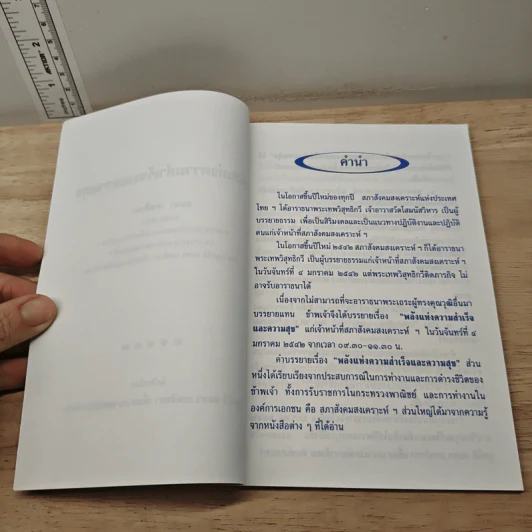 คำนำ
ในโอกาสขึ้นปีใหม่ของทุกปี สภาสังคมสงเคราะห์แห่งประเทศ
ไทย ฯ ได้อาราธนาพระเทพวิสุทธิกวี เจ้าอาวาสวัดโสมนัสวิหาร เป็นผู้
บรรยายธรรม เพื่อเป็นสิริมงคลและเป็นแนวทางปฏิบัติงานและปฏิบัติ
ตนแก่เจ้าหน้าที่สภาสังคมสงเคราะห์ ฯ
ในโอกาสขึ้นปีใหม่ ๒๕๔๒ สภาสังคมสงเคราะห์ ฯ ก็ได้อาราธนา
พระเทพวิสุทธิกวี เป็นผู้บรรยายธรรมแก่เจ้าหน้าที่สภาสังคมสงเคราะห์ ฯ
ในวันจันทร์ที่ ๔ มกราคม ๒๕๔๒ แต่พระเทพวิสุทธิกวีติดภารกิจ ไม่
อาจรับอาราธนาได้
เนื่องจากไม่สามารถที่จะอาราธนาพระเถระผู้ทรงคุณวุฒิอื่นมา
บรรยายแทน ข้าพเจ้าจึงได้บรรยายเรื่อง "พลังแห่งความสำเร็จ
และความสุข" แก่เจ้าหน้าที่สภาสังคมสงเคราะห์ ฯ ในวันจันทร์ที่ ๔
มกราคม ๒๕๔๒ จากเวลา ๐๙.๓๐-๑๑.๓๐ น.
คำบรรยายเรื่อง "พลังแห่งความสำเร็จและความสุข" ส่วน
หนึ่งได้เรียบเรียงจากประสบการณ์ในการทำงานและการดำรงชีวิตของ
ข้าพเจ้า ทั้งการรับราชการในกระทรวงพาณิชย์ และการทำงานใน
องค์การเอกชน คือ สภาสังคมสงเคราะห์ ฯ ส่วนใหญ่ได้มาจากความรู้
จากหนังสือต่าง ๆ ที่ได้อ่าน
1
2